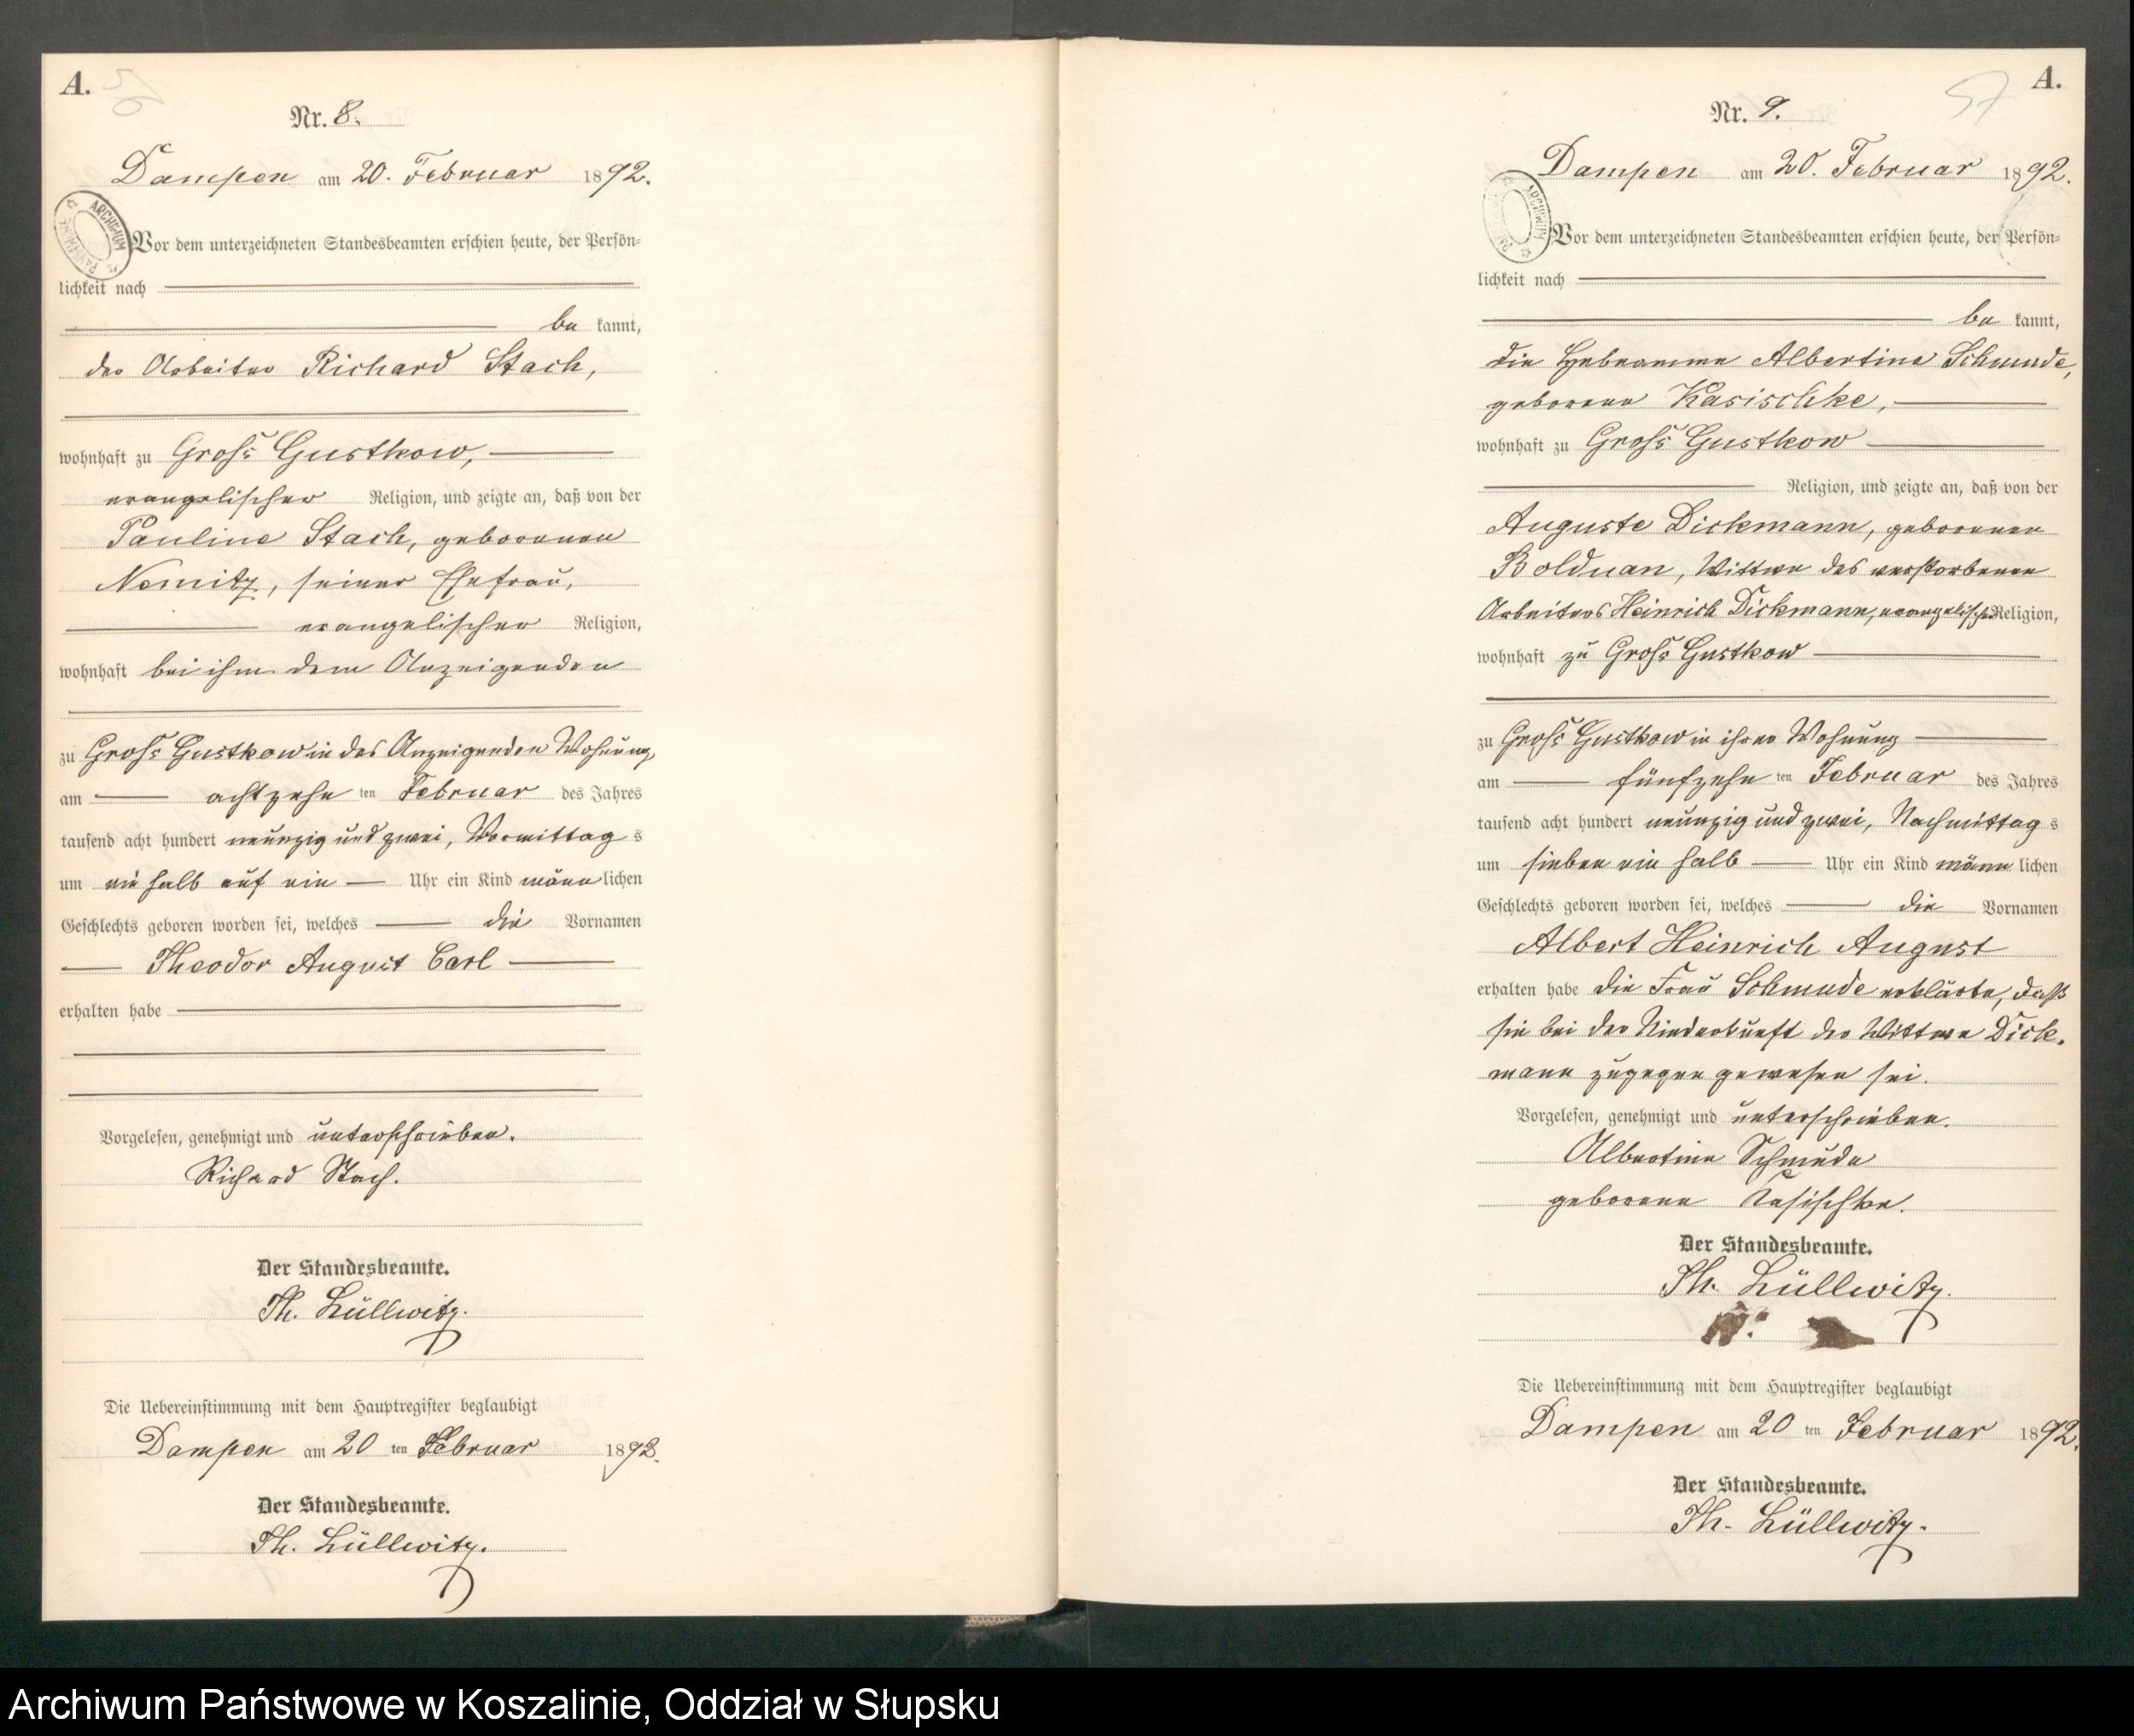 A.
56
Nr. 8.
Dampen am 20. Februar 1892.
ARCHIWUM PAŃSTWOWE
Vor dem unterzeichneten Standesbeamten erschien heute, der Persön-
lichkeit nach
be kannt,
der Arbeiter Richard Stach,
wohnhaft zu Groß Gustkow,
evangelischer Religion, und zeigte an, daß von der
Pauline Stach, geborenen
Nemitz, seiner Ehefrau,
evangelischer Religion,
wohnhaft bei ihm dem Anzeigenden
zu Groß Gustkow in des Anzeigenden Wohnung,
am achtzehn ten Februar des Jahres
tausend acht hundert neunzig und zwei, Vormittag s
um ein halb auf ein Uhr ein Kind männ lichen
Geschlechts geboren worden sei, welches die Vornamen
Theodor August Carl
erhalten habe
Vorgelesen, genehmigt und unterschrieben.
Richard Stach.
Der Standesbeamte.
Th. Lüllwitz.
Die Uebereinstimmung mit dem Hauptregister beglaubigt
Dampen am 20 ten Februar 1892.
Der Standesbeamte.
Th. Lüllwitz.
A.
57
Nr. 9.
Dampen am 20. Februar 1892.
ARCHIWUM
Vor dem unterzeichneten Standesbeamten erschien heute, der Persön-
lichkeit nach
be kannt,
die Hebeamme Albertine Schmude,
geborene Kasischke,
wohnhaft zu Groß Gustkow
Religion, und zeigte an, daß von der
Auguste Dickmann, geborenen
Bolduan, Wittwe des verstorbenen
Arbeiters Heinrich Dickmann, evangelischer Religion,
wohnhaft zu Groß Gustkow
zu Groß Gustkow in ihrer Wohnung
am fünfzehn ten Februar des Jahres
tausend acht hundert neunzig und zwei, Nachmittag s
um sieben ein halb Uhr ein Kind männ lichen
Geschlechts geboren worden sei, welches die Vornamen
Albert Heinrich August
erhalten habe die Frau Schmude erklärte, daß
sie bei der Niederkunft der Wittwe Dick-
mann zugegen gewesen sei.
Vorgelesen, genehmigt und unterschrieben.
Albertine Schmude
geborene Kasischke.
Der Standesbeamte.
Th. Lüllwitz.
Die Uebereinstimmung mit dem Hauptregister beglaubigt
Dampen am 20 ten Februar 1892.
Der Standesbeamte.
Th. Lüllwitz.
Archiwum Państwowe w Koszalinie, Oddział w Słupsku